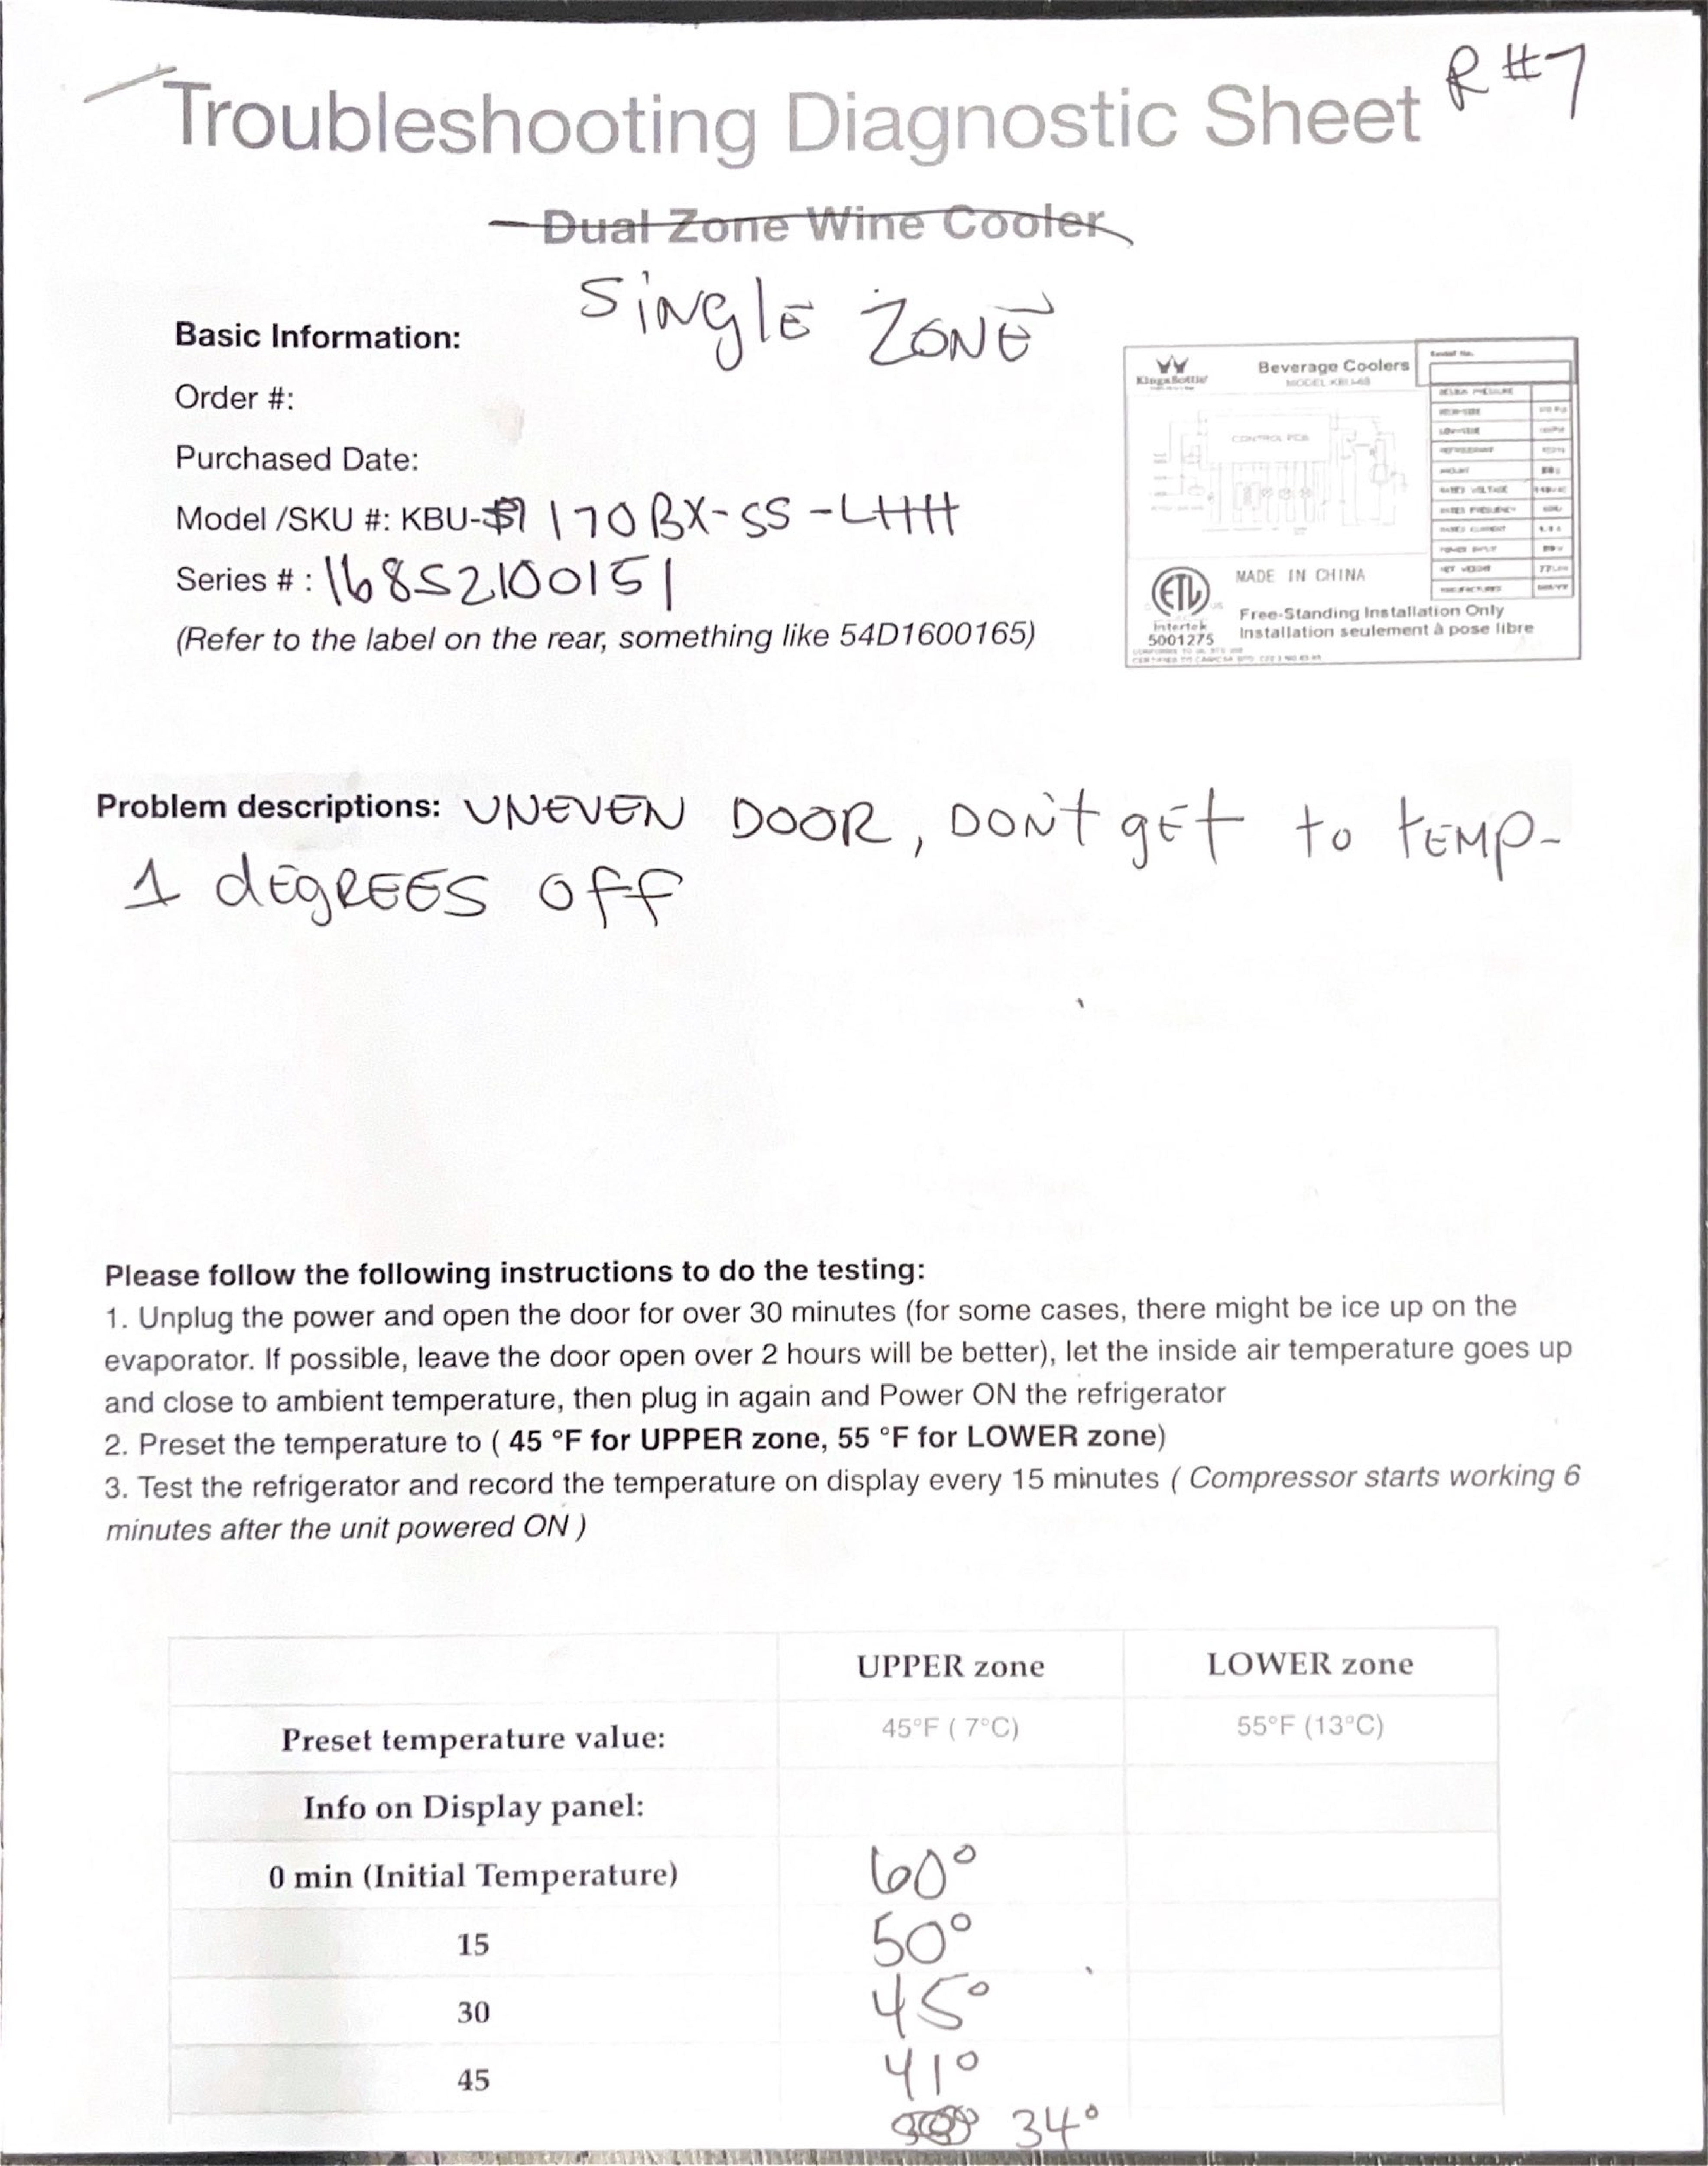 R#7
Troubleshooting Diagnostic Sheet
Dual Zone Wine Cooler
SINglE ZONE
Basic Information:
Order #:
Purchased Date:
Model /SKU #: KBU-170BX-SS-LHH
Series # : 16852100151
(Refer to the label on the rear, something like 54D1600165)
KingsBottle
Beverage Coolers
CONTROL PCB
MADE IN CHINA
ETL
Intertek
5001275
Free-Standing Installation Only
Installation seulement à pose libre
Problem descriptions: UNEVEN DOOR, DON't gEt to tEMp-
1 dEgREES Off
Please follow the following instructions to do the testing:
1. Unplug the power and open the door for over 30 minutes (for some cases, there might be ice up on the
evaporator. If possible, leave the door open over 2 hours will be better), let the inside air temperature goes up
and close to ambient temperature, then plug in again and Power ON the refrigerator
2. Preset the temperature to ( 45 °F for UPPER zone, 55 °F for LOWER zone)
3. Test the refrigerator and record the temperature on display every 15 minutes ( Compressor starts working 6
minutes after the unit powered ON )
UPPER zone LOWER zone
Preset temperature value: 45°F ( 7°C) 55°F (13°C)
Info on Display panel:
0 min (Initial Temperature) 60°
15 50°
30 45°
45 41°
34°